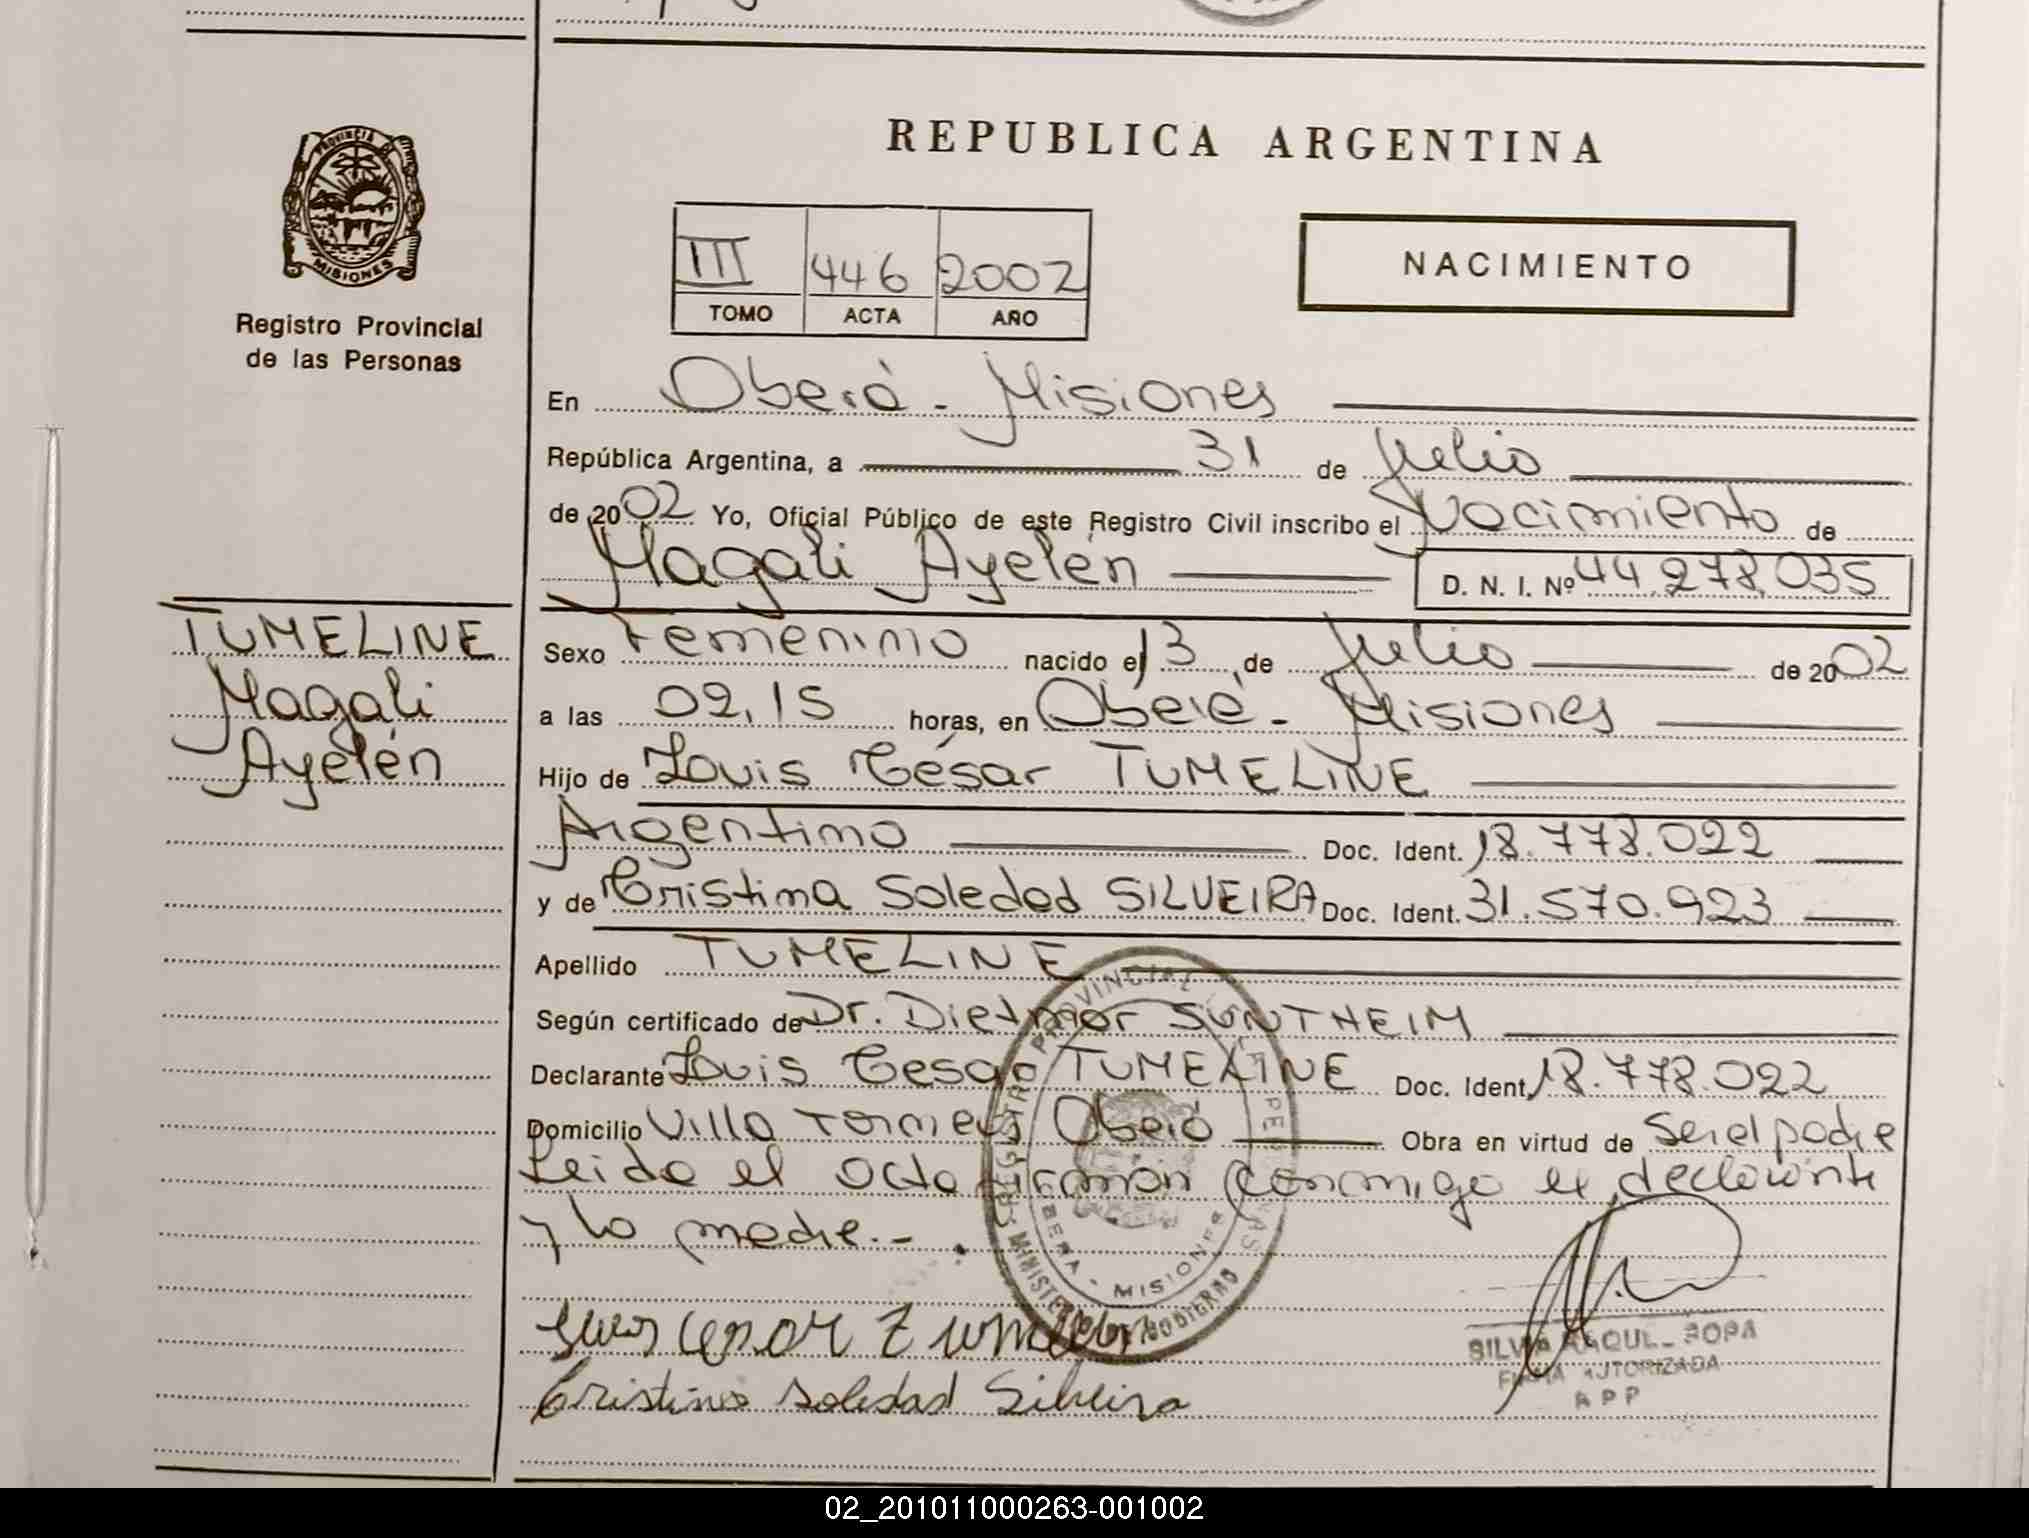 PROVINCIA DE
MISIONES
Registro Provincial
de las Personas
REPUBLICA ARGENTINA
III 446 2002
TOMO ACTA AÑO
NACIMIENTO
En Oberá - Misiones
República Argentina, a 31 de Julio
de 2002 Yo, Oficial Público de este Registro Civil inscribo el Nacimiento de
Magali Ayelén D. N. I. Nº 44.278.035
TUMELINE
Magali
Ayelén
Sexo Femenino nacido el 13 de Julio de 2002
a las 02,15 horas, en Oberá - Misiones
Hijo de Louis César TUMELINE
Argentino Doc. Ident. 18.778.022
y de Cristina Soledad SILVEIRA Doc. Ident. 31.570.923
Apellido TUMELINE
Según certificado de Dr. Dietmar SUNTHEIM
Declarante Louis Cesar TUMELINE Doc. Ident. 18.778.022
Domicilio Villa Oberá Obra en virtud de Ser el padre
Leida el acta firman conmigo el declarante
y la madre.-
REGISTRO PROVINCIAL PERSONAS
OBERA - MISIONES
MINISTERIO GOBIERNO
Cristina Soledad Silveira
SILVIA RAQUEL
FIRMA AUTORIZADA
02_201011000263-001002